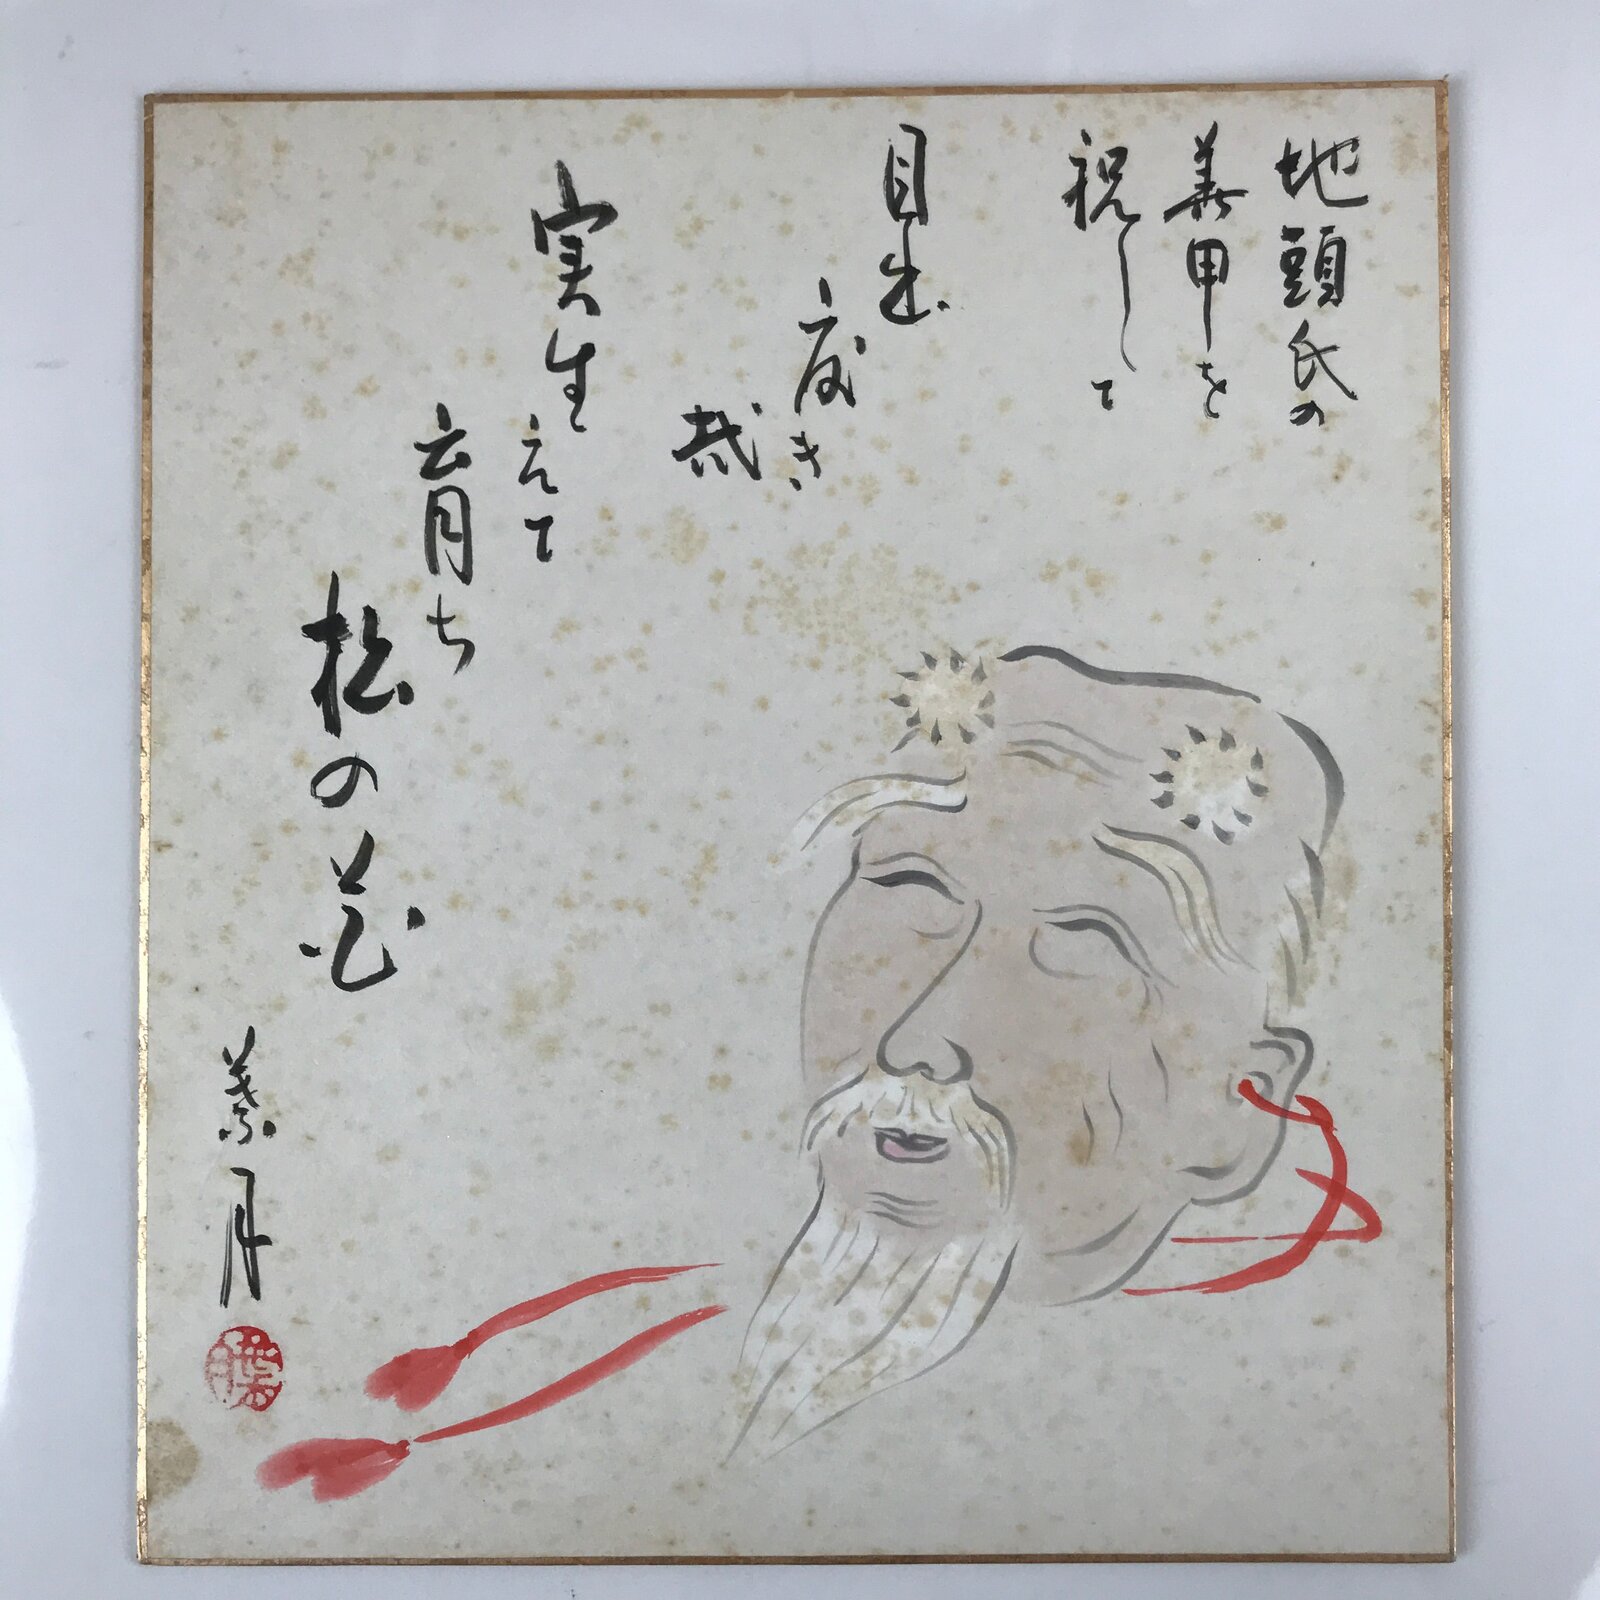 地頭氏の
華甲を
祝して
目出
度き
哉
実生
えて
育ち
松の花
月